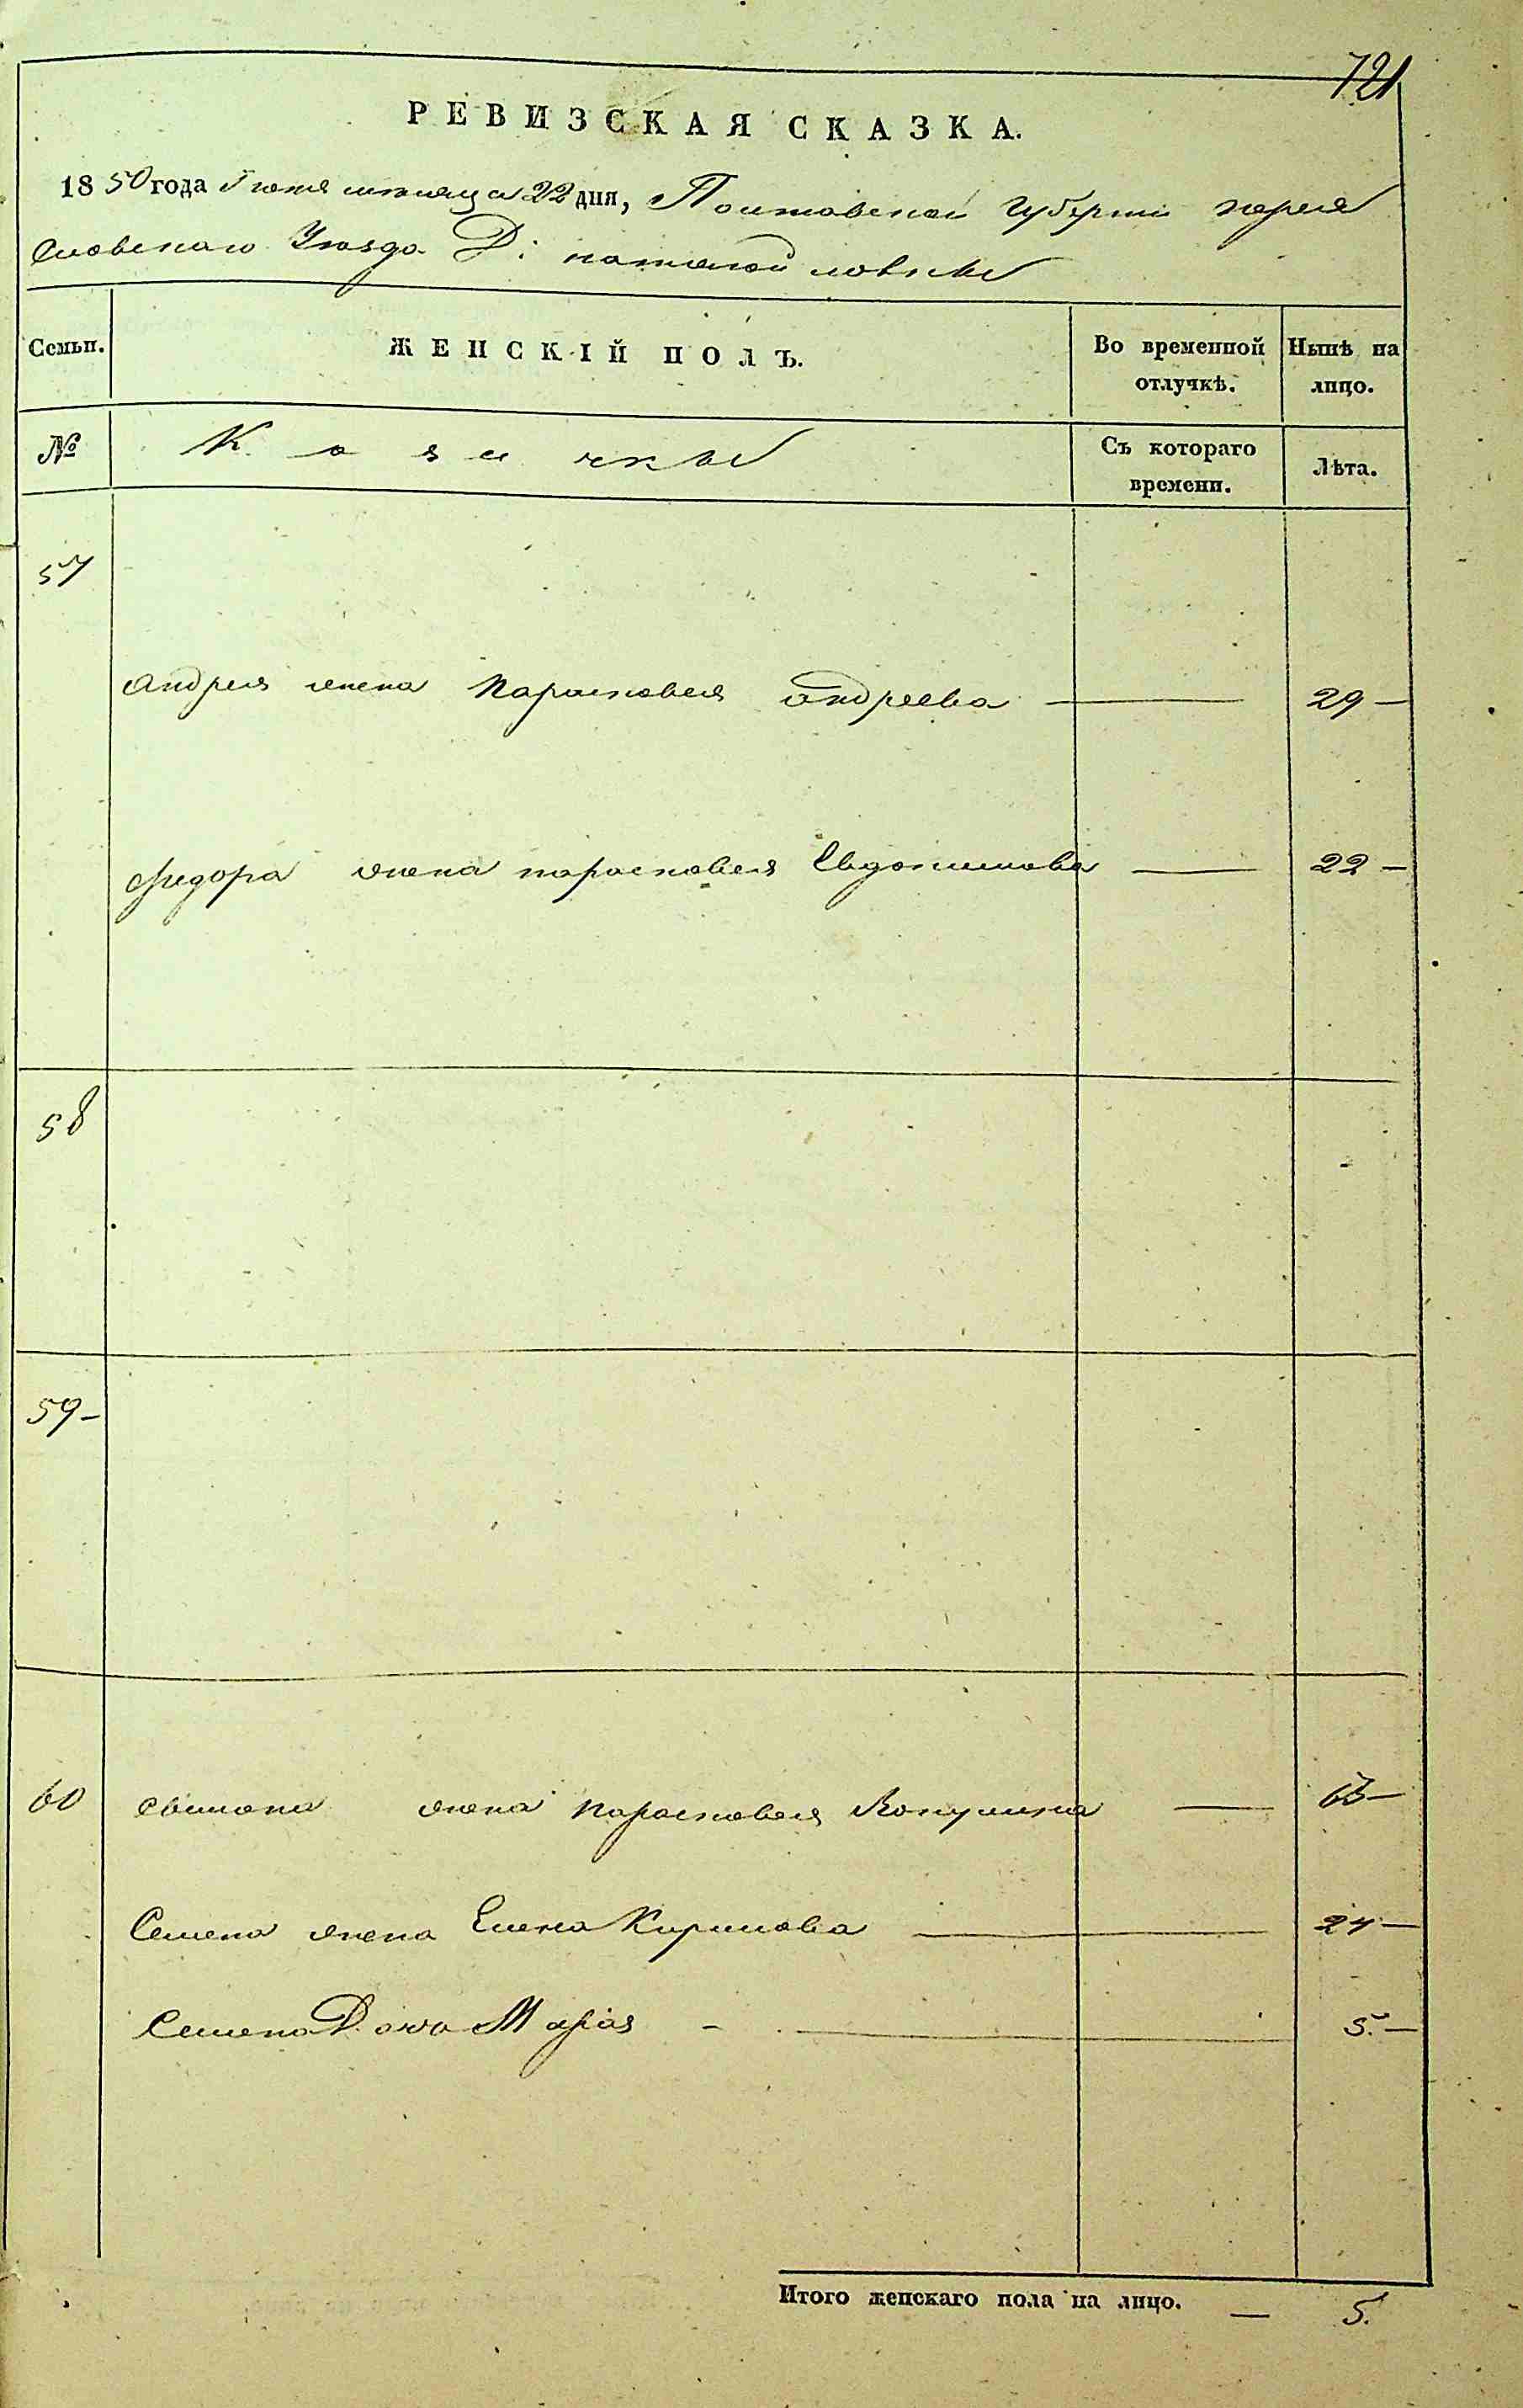 721
РЕВИЗСКАЯ СКАЗКА.
1850 года Июня месяца 22 дня, Полтавской Губернии Перея
словскаго Уезда Д:
Семьи. ЖЕНСКІЙ ПОЛЪ. Во временной отлучкѣ. Нынѣ на лицо.
№ Козачки Съ котораго времени. Лѣта.
57
Андрея жена Парасковея Андреева — 29 —
Федора жена парасковея Евдокимова — 22 —
58
59 —
60 жена Парасковея — 63 —
Семена жена Елена Кирилова — 24 —
Семена Дочь Марія — 5. —
Итого женскаго пола на лицо. — 5.